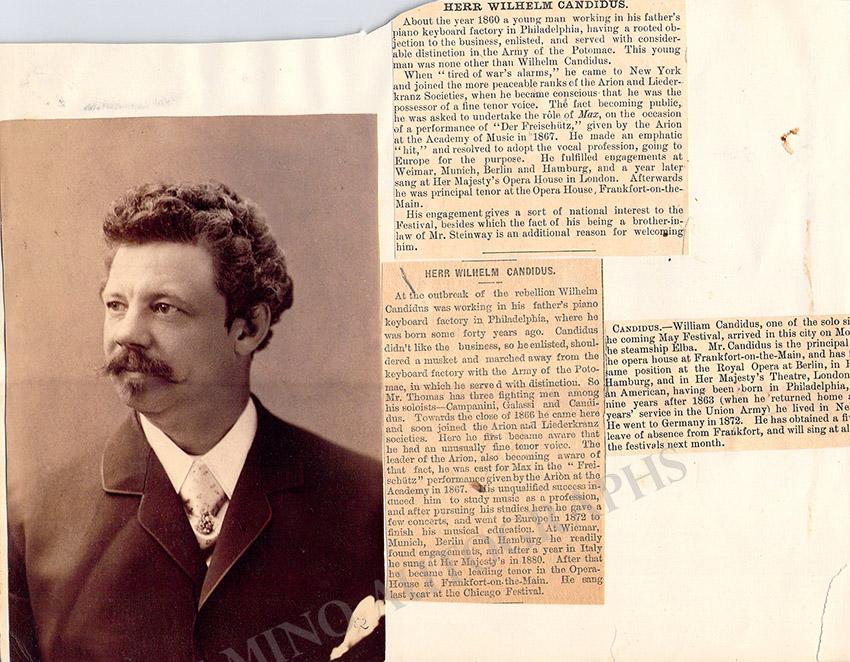 HERR WILHELM CANDIDUS.
About the year 1860 a young man working in his father's
piano keyboard factory in Philadelphia, having a rooted ob-
jection to the business, enlisted, and served with consider-
able distinction in the Army of the Potomac. This young
man was none other than Wilhelm Candidus.
When "tired of war's alarms," he came to New York
and joined the more peaceable ranks of the Arion and Lieder-
kranz Societies, when he became conscious that he was the
possessor of a fine tenor voice. The fact becoming public,
he was asked to undertake the rôle of Max, on the occasion
of a performance of "Der Freischütz," given by the Arion
at the Academy of Music in 1867. He made an emphatic
"hit," and resolved to adopt the vocal profession, going to
Europe for the purpose. He fulfilled engagements at
Weimar, Munich, Berlin and Hamburg, and a year later
sang at Her Majesty's Opera House in London. Afterwards
he was principal tenor at the Opera House, Frankfort-on-the-
Main.
His engagement gives a sort of national interest to the
Festival, besides which the fact of his being a brother-in-
law of Mr. Steinway is an additional reason for welcoming
him.
HERR WILHELM CANDIDUS.
At the outbreak of the rebellion Wilhelm
Candidus was working in his father's piano
keyboard factory in Philadelphia, where he
was born some forty years ago. Candidus
didn't like the business, so he enlisted, shoul-
dered a musket and marched away from the
keyboard factory with the Army of the Poto-
mac, in which he serve d with distinction. So
Mr. Thomas has three fighting men among
his soloists—Campanini, Galassi and Candi-
dus. Towards the close of 1866 he came here
and soon joined the Arion and Liederkranz
societies. Here he first became aware that
he had an unusually fine tenor voice. The
leader of the Arion, also becoming aware of
that fact, he was cast for Max in the "Frei-
schütz" performance given by the Arion at the
Academy in 1867. His unqualified success in-
duced him to study music as a profession,
and after pursuing his studies here he gave a
few concerts, and went to Europe in 1872 to
finish his musical education. At Wiemar,
Munich, Berlin and Hamburg he readily
found engagements, and after a year in Italy
he sung at Her Majesty's in 1880. After that
he became the leading tenor in the Opera-
House at Frankfort-on-the-Main. He sang
last year at the Chicago Festival.
CANDIDUS.—William Candidus, one of the solo si
he coming May Festival, arrived in this city on Mo
he steamship Elba. Mr. Candidus is the principal
he opera house at Frankfort-on-the-Main, and has
ame position at the Royal Opera at Berlin, in
Hamburg, and in Her Majesty's Theatre, London
an American, having been born in Philadelphia,
nine years after 1863 (when he returned home
years' service in the Union Army) he lived in Ne
He went to Germany in 1872. He has obtained a
leave of absence from Frankfort, and will sing at al
the festivals next month.
MINO AUTOGRAPHS